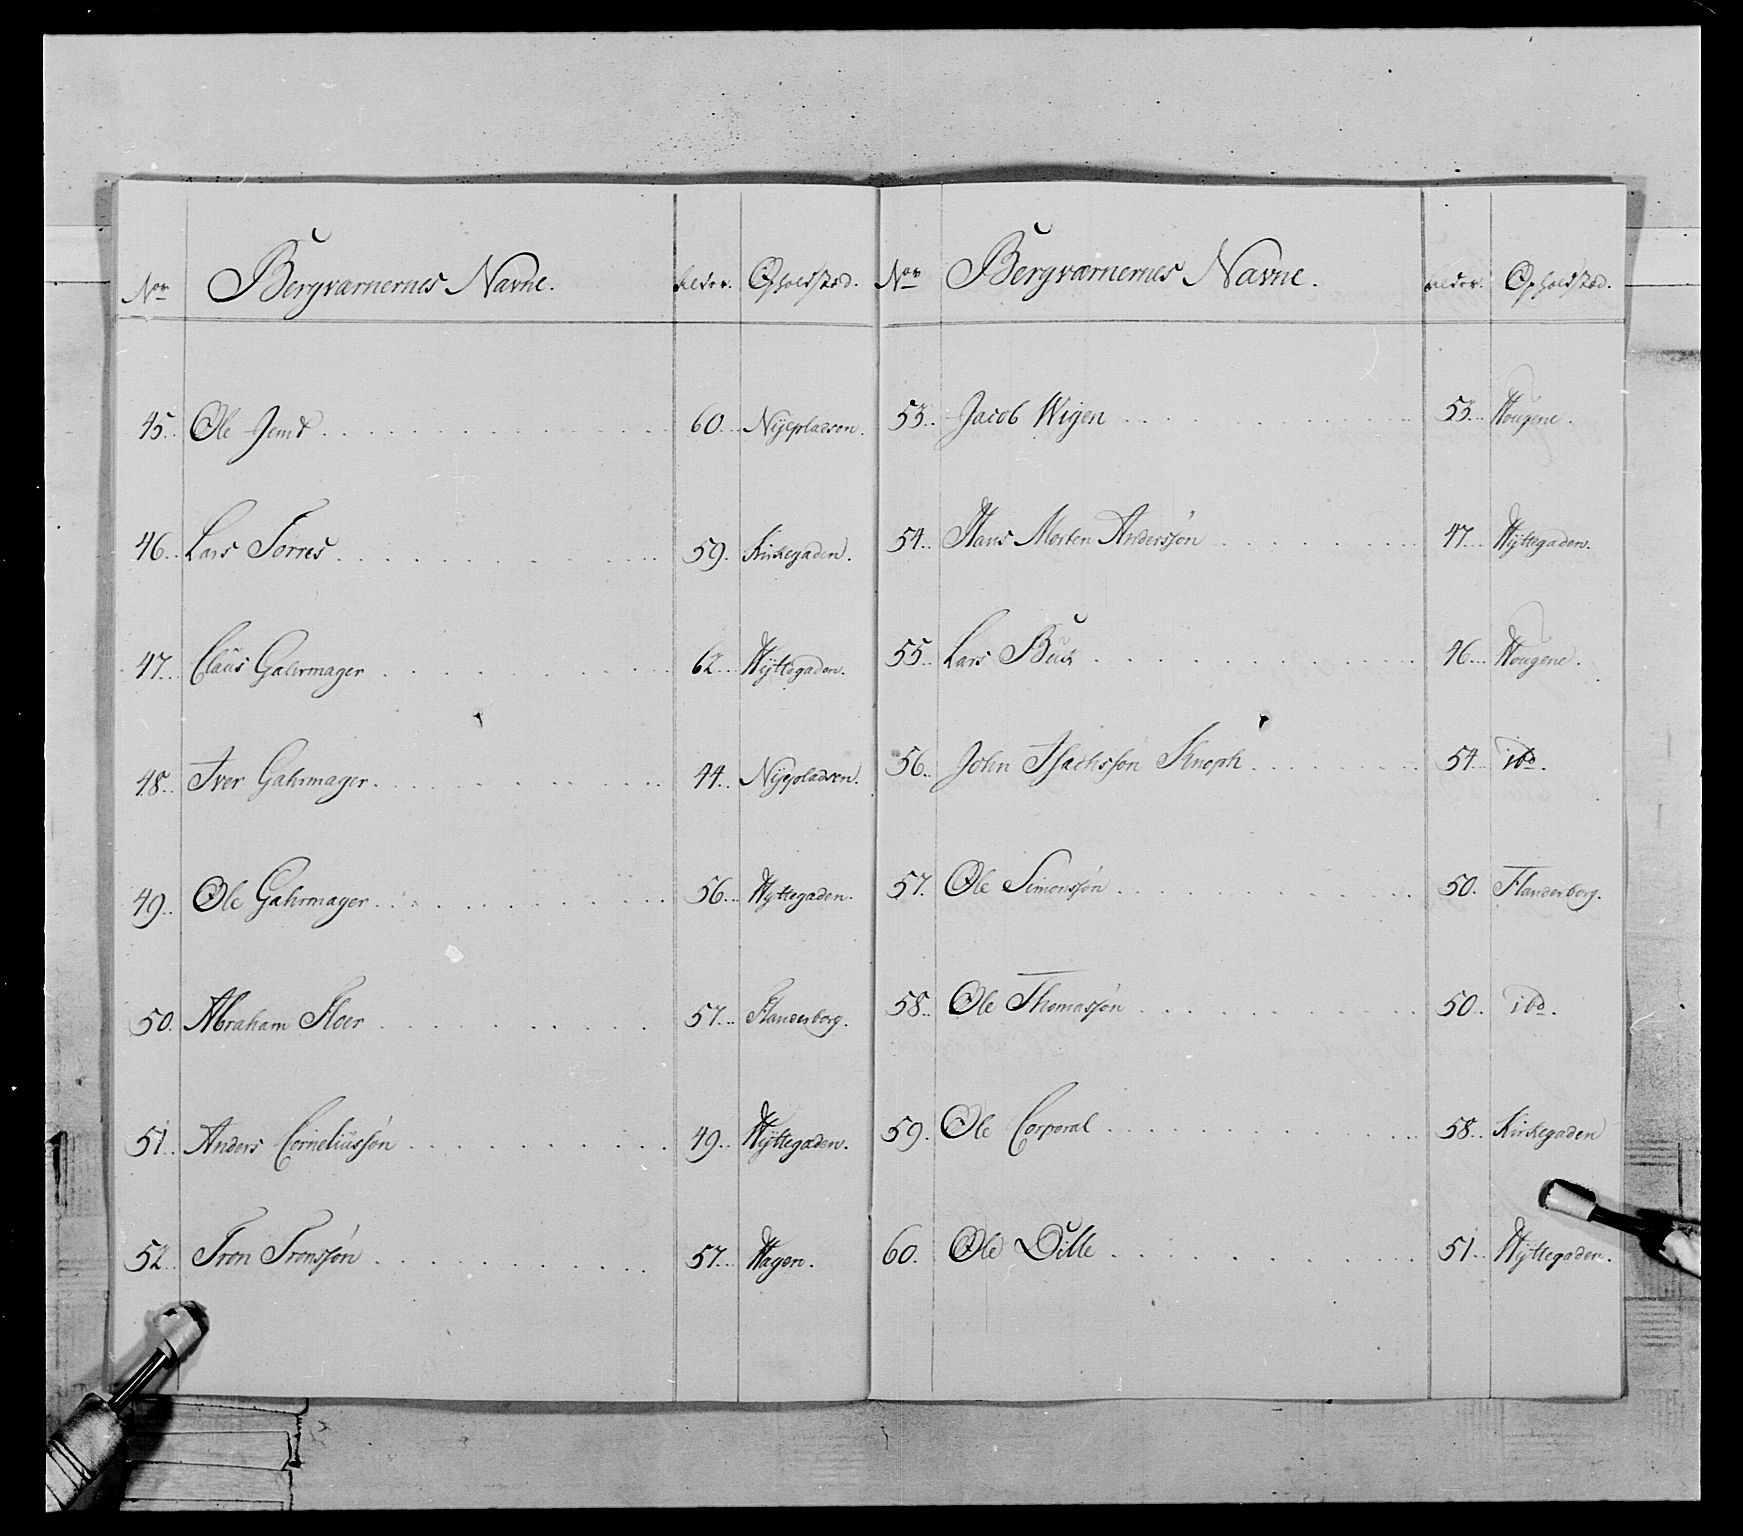 No Bergværnernes Navne. Alder. Opholdsted.
45. Ole Jemt 60. Nyepladsen.
46. Lars Torres 59. Kirkegaden.
47. Claus Gahrmager 62. Hyttegaden.
48. Iver Gahrmager. 44. Nyepladsen.
49. Ole Gahrmager. 56. Hyttegaden.
50. Abraham Floer 57. Flanderborg.
51. Anders Corneliussøn 49. Hyttegaden.
52. Tron Tronssøn 57. Hagen.
No Bergværnernes Navne. Alder. Opholdsted.
53. Jacob Wigen 53. Hougene.
54. Hans Morten Anderssøn 47. Hyttegaden.
55. Lars Buck 46. Hougene.
56. John Isachssøn Knoph 54. ibd.
57. Ole Simonssøn 50. Flanderborg.
58. Ole Thomassøn 50. ibd.
59. Ole Corporal 58. Kirkegaden
60. Ole Dille 51. Hyttegaden.